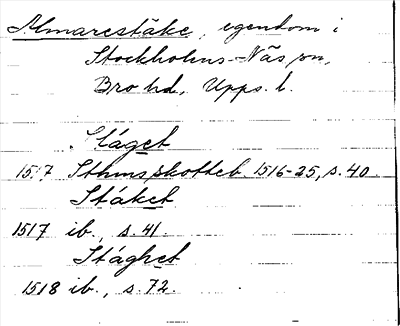 Almarestäke, egendom i
Stockholms-Näs sn,
Bro hd, Upps. l.
Stáget
1517 Sthms skotteb. 1516-25, s. 40.
Stáket
1517 ib., s. 41.
Stághet
1518 ib., s. 72.